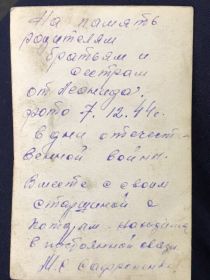 На память
родителям
братьям и
сестрам
от Леонида.
фото 7.12.44г.
в дни отечест-
венной войны.
Вместе с своим
старшиной с
которым находимся
в постоянной связи